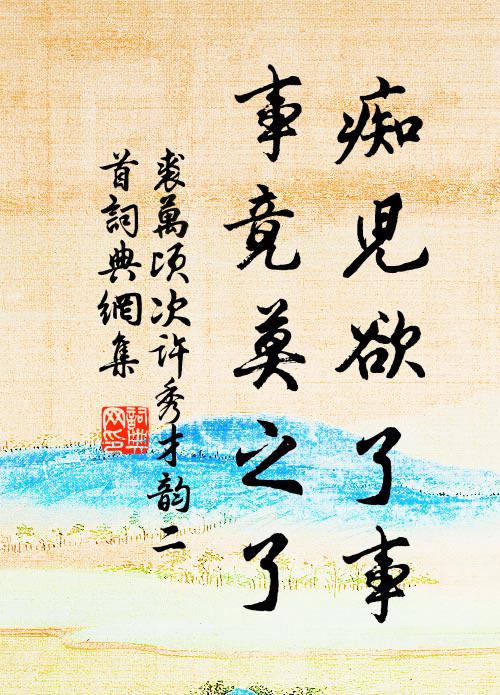 痴児欲了事
事竟莫之了
裘萬頃次許秀才韵二
首詞典網集
詞典
网印